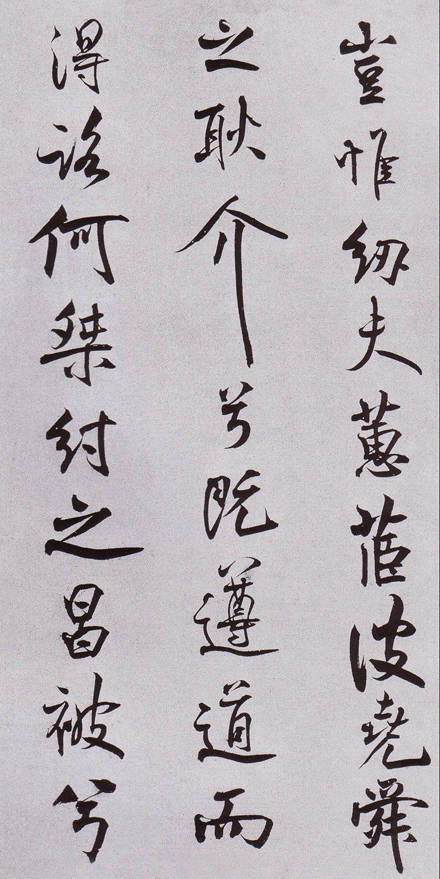 豈惟紉夫蕙茝彼堯舜
之耿介兮既遵道而
得路何桀紂之昌被兮